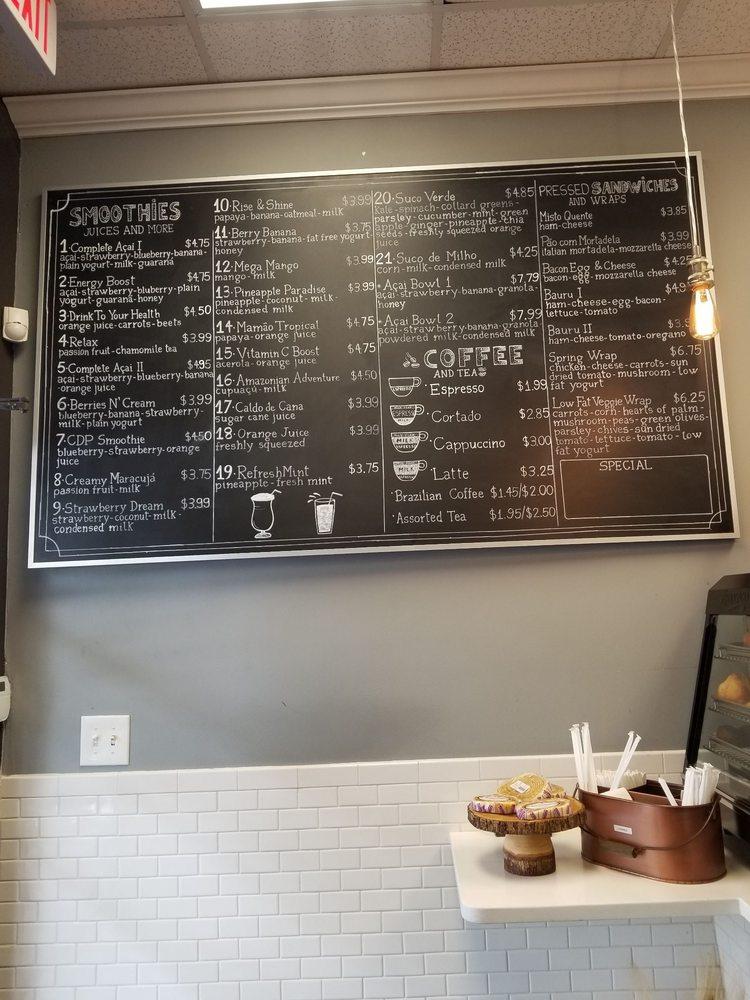 EXIT
SMOOTHIES
JUICES AND MORE
1·Complete Açaí I $4.75
açaí-strawberry-blueberry-banana-
plain yogurt-milk-guaraná
2·Energy Boost $4.75
açaí-strawberry-blueberry-plain
yogurt-guaraná-honey
3·Drink To Your Health $4.50
orange juice-carrots-beets
4·Relax $3.99
passion fruit-chamomile tea
5·Complete Açaí II $4.95
açaí-strawberry-blueberry-banana
-orange juice
6·Berries N' Cream $3.99
blueberry-banana-strawberry-
milk-plain yogurt
7·CDP Smoothie $4.50
blueberry-strawberry-orange
juice
8·Creamy Maracujá $3.75
passion fruit-milk
9·Strawberry Dream $3.99
strawberry-coconut-milk-
condensed milk
10·Rise & Shine $3.99
papaya-banana-oatmeal-milk
11·Berry Banana $3.75
strawberry-banana-fat free yogurt-
honey
12·Mega Mango $3.99
mango-milk
13·Pineapple Paradise $3.99
pineapple-coconut-milk-
condensed milk
14·Mamão Tropical $4.75
papaya-orange juice
15·Vitamin C Boost $4.75
acerola-orange juice
16·Amazonian Adventure $4.50
cupuaçu-milk
17·Caldo de Cana $3.99
sugar cane juice
18·Orange Juice $3.99
freshly squeezed
19·RefreshMint $3.75
pineapple-fresh mint
20·Suco Verde $4.85
Kale-spinach-collard greens-
parsley-cucumber-mint-green
apple-ginger-pineapple-chia
seeds-freshly squeezed orange
juice
21·Suco de Milho $4.25
corn-milk-condensed milk
·Açaí Bowl 1 $7.79
açaí-strawberry-banana-granola-
honey
·Açaí Bowl 2 $7.99
açaí-strawberry-banana-granola
powdered milk-condensed milk
COFFEE
AND TEAS
·Espresso $1.99
·Cortado $2.85
·Cappuccino $3.00
·Latte $3.25
·Brazilian Coffee $1.45/$2.00
·Assorted Tea $1.95/$2.50
PRESSED SANDWICHES
AND WRAPS
Misto Quente $3.85
ham-cheese
Pão com Mortadela $3.99
italian mortadela-mozzarella cheese
Bacon Egg & Cheese
bacon-egg-mozzarella cheese
Bauru I
ham-cheese-egg-bacon-
lettuce-tomato
Bauru II
ham-cheese-tomato-oregano
Spring Wrap $6.75
chicken-cheese-carrots-sun
dried tomato-mushroom-low
fat yogurt
Low Fat Veggie Wrap $6.25
carrots-corn-hearts of palm-
mushroom-peas-green olives-
parsley-chives-sun dried
tomato-lettuce-tomato-low
fat yogurt
SPECIAL